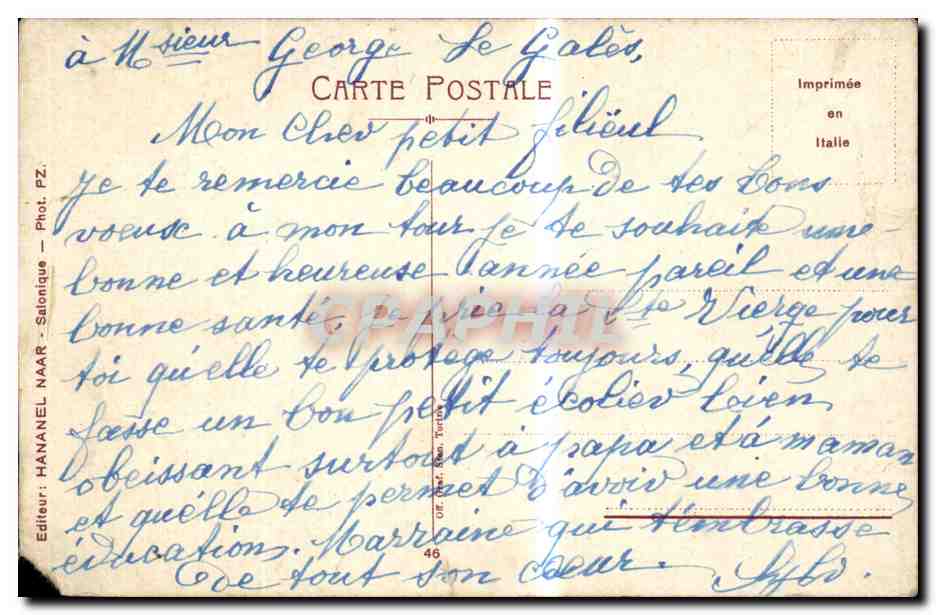 à Msieur George Le Galès,
CARTE POSTALE
Imprimée
en
Italie
Mon Cher petit filieul
Je te remercie beaucoup de tes bons
voeux à mon tour je te souhaite une
bonne et heureuse année pareil et une
bonne santé, je prie la Ste Vierge pour
toi qu'elle te protège toujours, qu'elle te
fasse un bon petit écolier bien
obeissant surtout à papa et à maman
et qu'elle te permet d'avoir une bonne
éducation. Marraine qui t'embrasse
De tout son coeur.
46
Editeur: HANANEL NAAR - Salonique — Phot. PZ.
Off. Graf. Turin
CPAPHIL